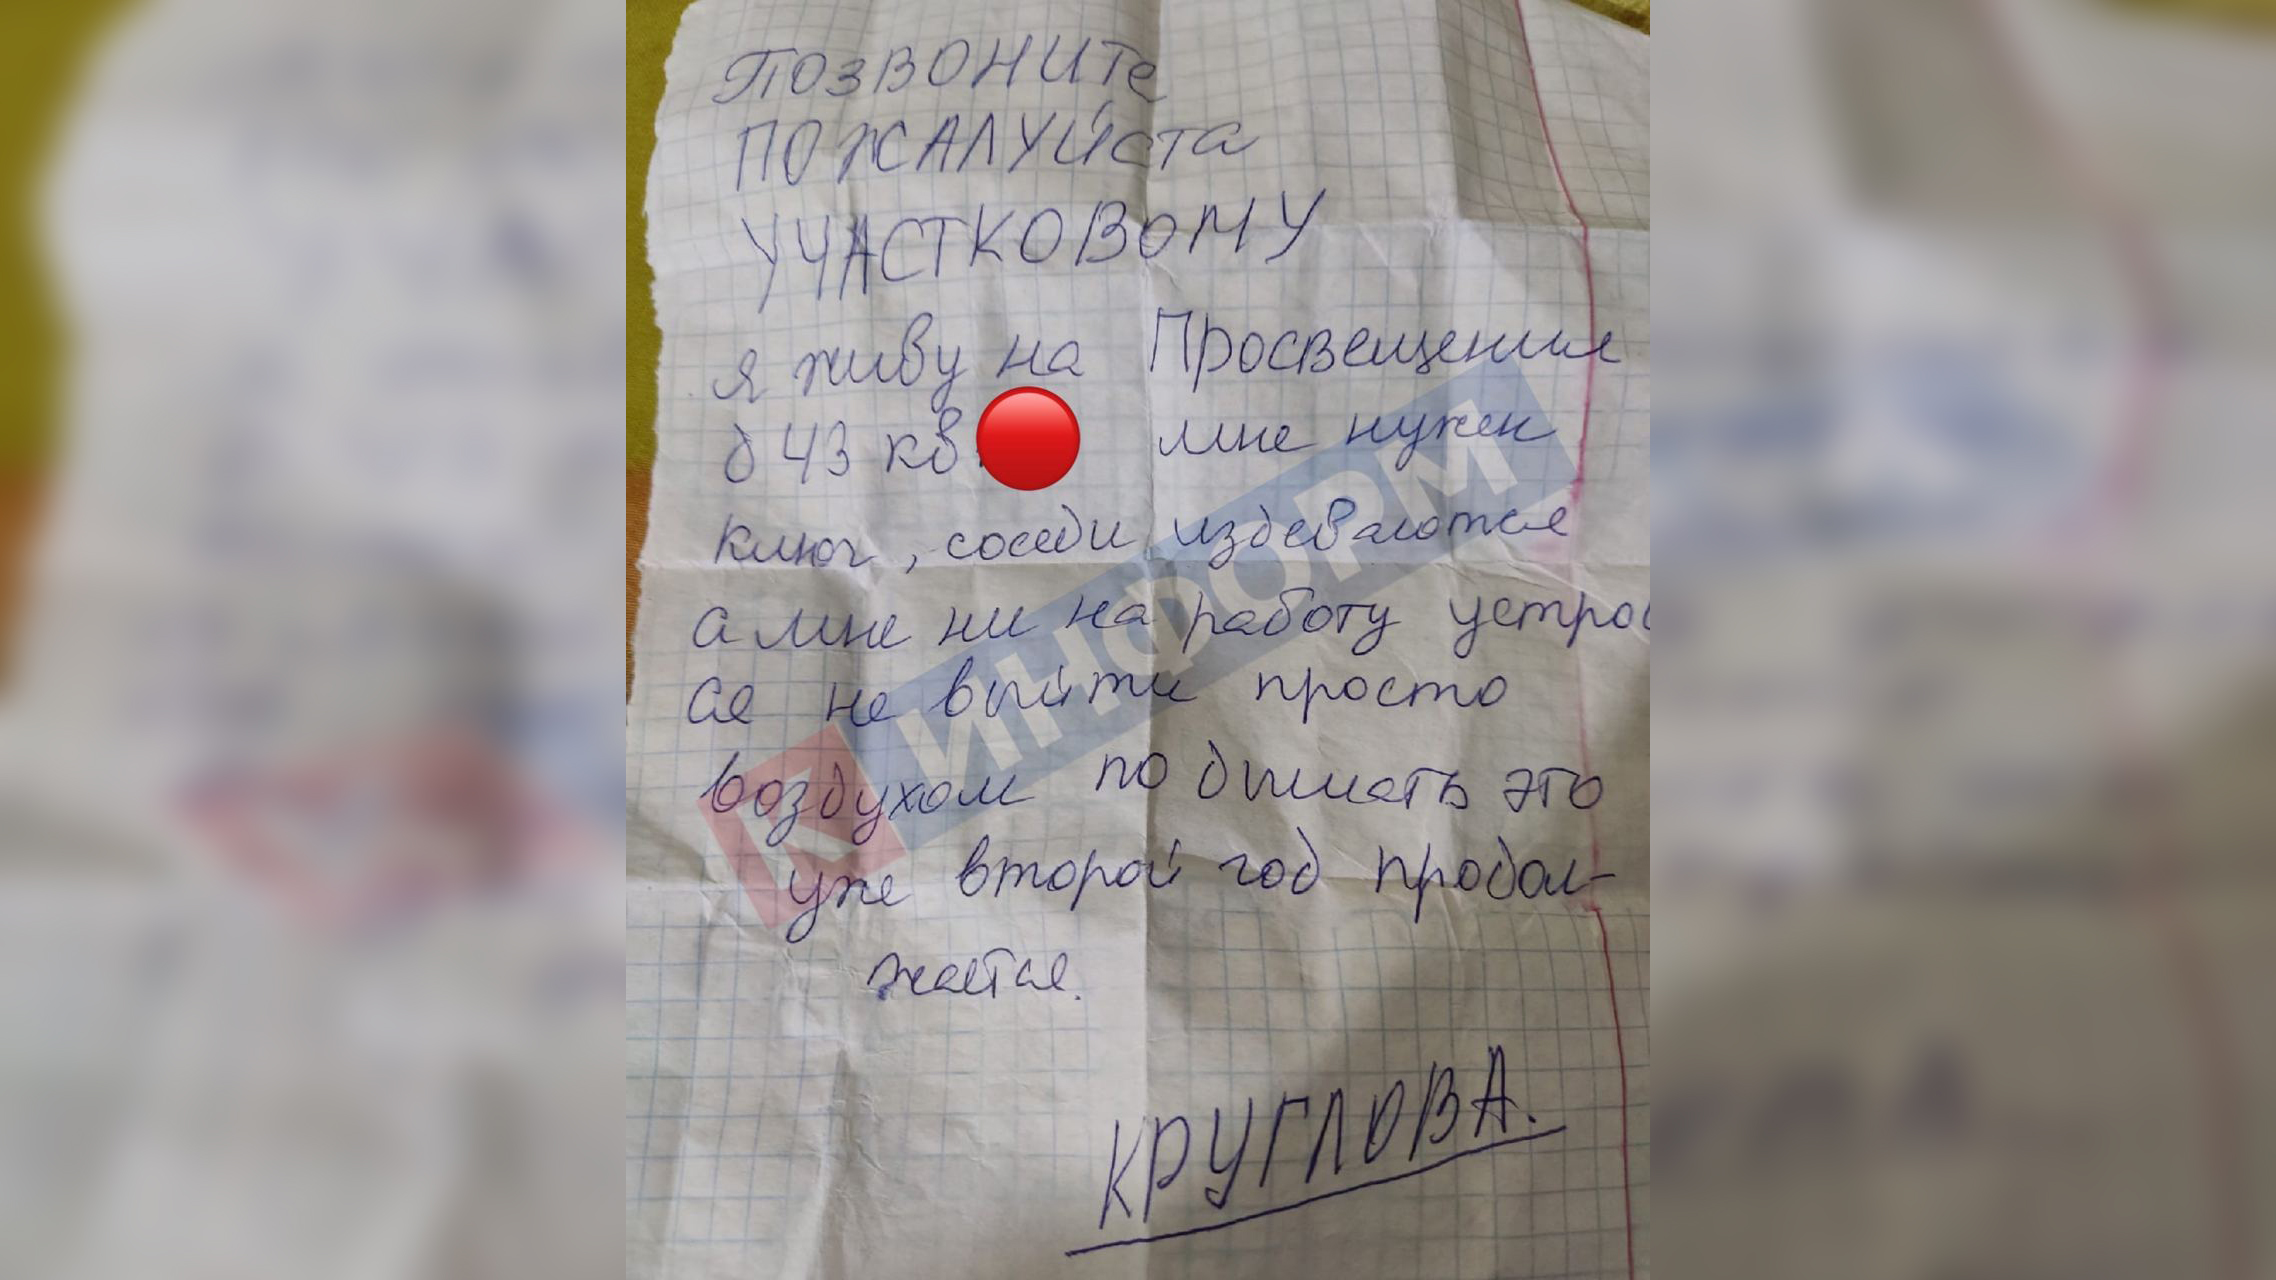 Позвоните
ПОЖАЛУЙста
УЧАСТКОВОМУ
я живу на Просвещения
д 43 кв. мне нужен
ключ, соседи издеваются
а мне ни на работу устро
ся не выйти просто
воздухом по дышать это
уже второй год продол-
жается.
КРУГЛОВА.
КИНФОРМ